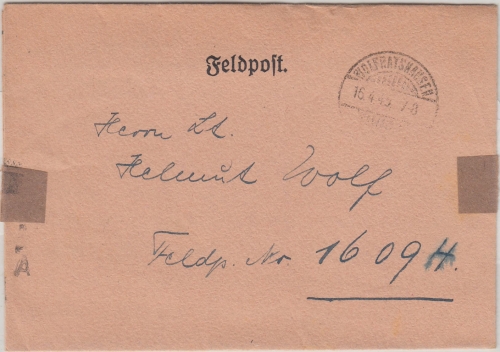 Feldpost.
WOLFRATSHAUSEN
16.4.45. 7-8
Herrn Lt.
Helmut Wolf
Feldp. No. 16094.